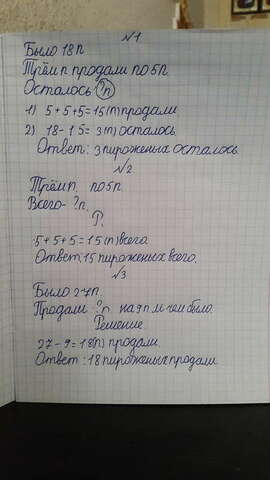 №1
Было 18п
Трём п продали по 5п
Осталось ?п
1) 5+5+5=15(п) продали
2) 18-15=3(п) осталось
Ответ: 3 пироженых осталось.
№2
Трём п. по 5п.
Всего-?п.
Р.
5+5+5=15(п) всего.
Ответ: 15 пироженых всего.
№3
Было 27п.
Продали ?п на 9п м. чем было.
Решение
27-9=18(п) продали
Ответ: 18 пироженых продали